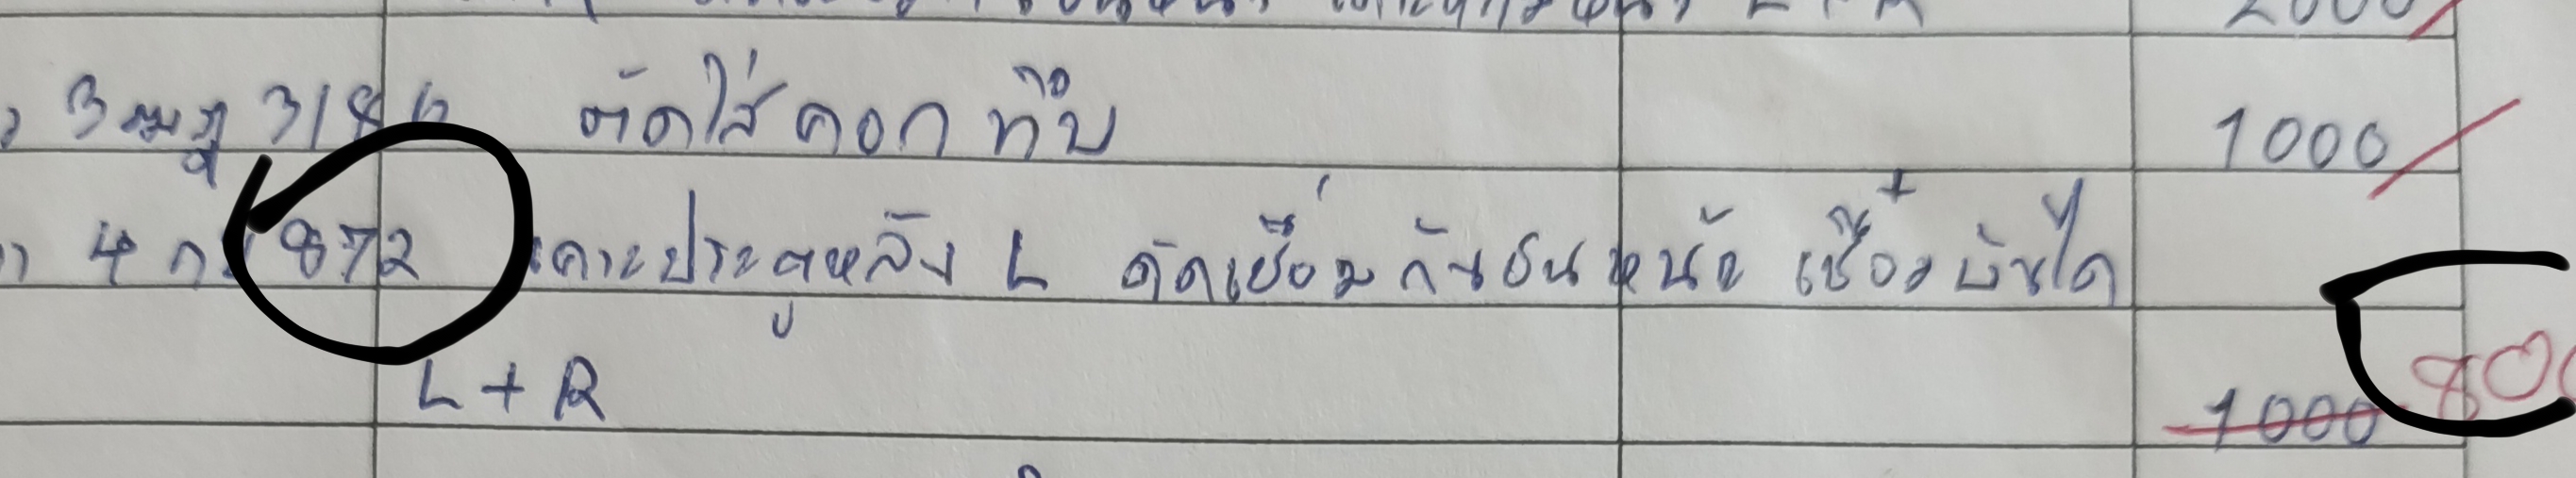 L + R 2000
3 ฒฎ 3186 ตัดใส่ คอก ทึบ 1000
4 ก 872 เคาะประตูหลัง L ดัดเชื่อม กันชน หน้า เชื่อม บันได
L + R 1000 800